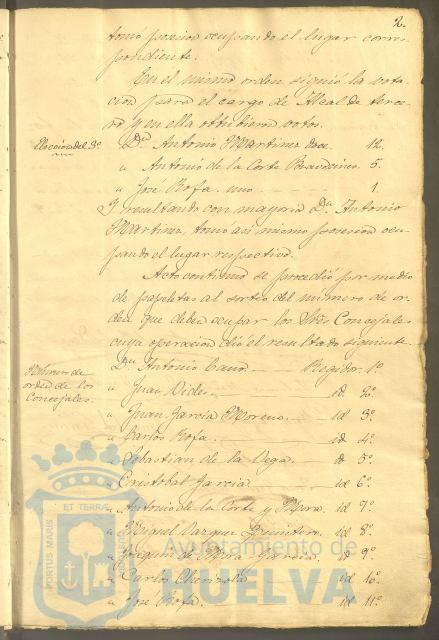 2.
tomó posesion ocupando el lugar corres-
pondiente.
En el mismo orden siguió la vota-
cion para el cargo de Alcalde terce-
ro y en ella obtubieron votos.
Eleccion del 3º
Dn Antonio Martinez doce 12.
" Antonio de la Corte Bravo cinco 5.
" José Rofa. uno 1.
Y resultando con mayoria Dn Antonio
Martinez, tomó asi mismo posesion ocu-
pando el lugar respectivo.
Acto continuo se procedió por medio
de papeletas al sorteo del numero de or-
den que deben ocupar los Sres Concejales
cuya operacion dió el resultado siguiente.
Numero de
orden de los
Concejales.
Dn Antonio Cano Regidor 1º
" Juan Vides id 2º
" Juan García Moreno id 3º
" Carlos Rofa. id 4º
" Sebastian de la Vega. id 5º
" Cristobal Garcia id 6º
" Antonio de la Corte y Mora id 7º
" Miguel Vazquez Quintero id 8º
" Joaquin de Mora Garcia id 9º
" Carlos id 10º
" José Rofa. id 11º
PORTUS MARIS ET TERRAE
Ayuntamiento de
HUELVA